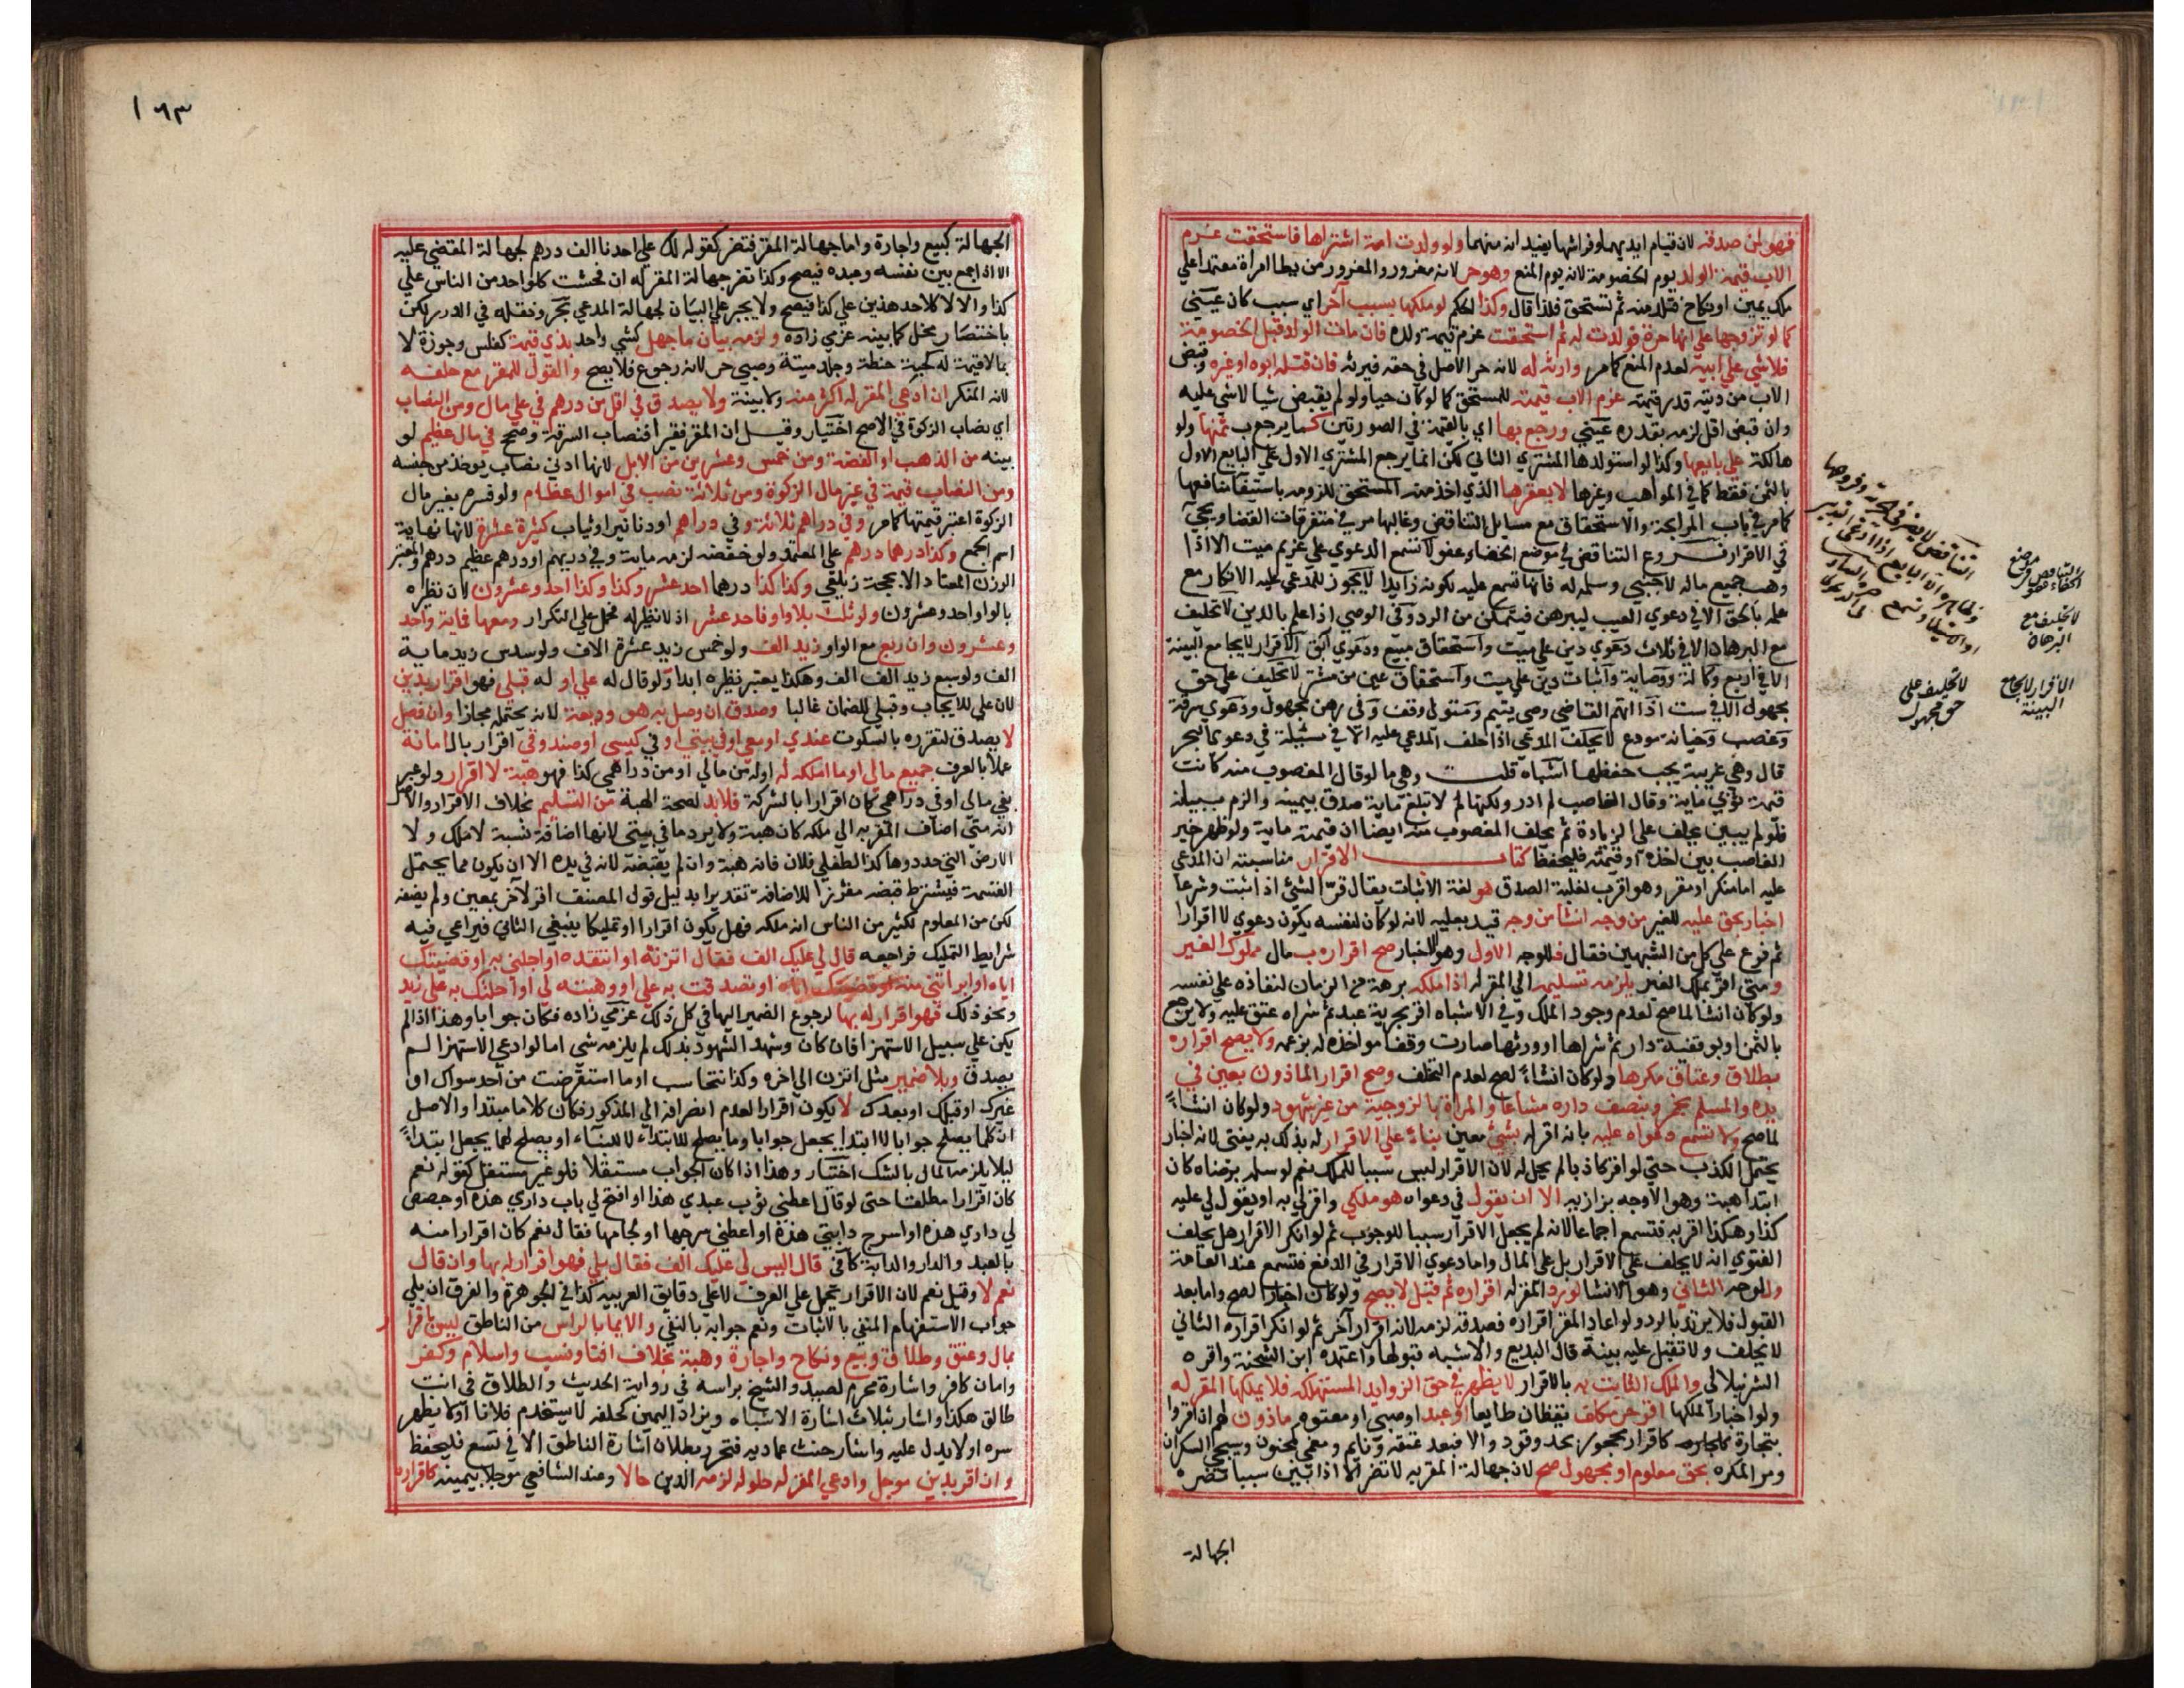 فهو لمن صدقه لان قيام ايديهما وفراشها يفيد انه منهما ولو ولدت امة اشتراها فاستحقت غرم
الاب قيمة الولد يوم الخصومة لانه يوم المنع وهو حر لانه مغرور والمغرور من يطا امراة معتمدا على
ملك يمين او نكاح فتلد منه ثم تستحق فلذا قال وكذا الحكم لو ملكها بسبب آخر اي سبب كان عيني
كما لو تزوجها على انها حرة فولدت له ثم استحقت غرم قيمة ولده فان مات الولد قبل الخصومة
فلا شي على ابيه لعدم المنع كما مر وارثه له لانه حر الاصل في حقه فيرثه فان قتله ابوه او غيره وقبض
الاب من ديته قدر قيمته غرم الاب قيمته للمستحق كما لو كان حيا ولو لم يقبض شيا لا شي عليه
وان قبض اقل لزمه بقدره عيني ورجع بها اي بالقيمة في الصورتين كما يرجع ب ثمنها ولو
هالكة على بايعها وكذا لو استولدها المشتري الثاني لكن انما يرجع المشتري الاول على البايع الاول
بالثمن فقط كما في المواهب وغيرها لا بعقرها الذي اخذه منه المستحق للزومه باستيفا منافعها
كما مر في باب المرابحة والاستحقاق مع مسايل التناقض وغالبها مر في متفرقات القضا ويجي
في الاقرار فروع التناقض في موضع الخفاء عفو لا تسمع الدعوي على غريم ميت الا اذا
وهب جميع ماله لاجنبي وسلمه له فانها تسمع عليه لكونه زايدا لا يجوز للمدعى عليه الانكار مع
علمه بالحق الا في دعوي العيب ليبرهن فيتمكن من الرد وفي الوصي اذا علم بالدين لا تحليف
مع البرهان الا في ثلاث دعوي دين على ميت واستحقاق مبيع ودعوي ابق الاقرار لا يجامع البينة
الا في اربع وكالة ووصاية واثبات دين على ميت واستحقاق عين من مشتر لا تحليف على حق
مجهول الا في ست اذا اتهم القاضي وصي يتيم ومتولي وقف وفي رهن مجهول ودعوي سرقة
وغصب وخيانة مودع لا يحلف المدعي اذا حلف المدعي عليه الا في مسئلة في دعوى البحر
قال وهي غريبة يجب حفظها اشباه قلت وهي ما لو قال المغصوب منه كانت
قيمة ثوبي ماية وقال الغاصب لم ادر ولكنها لا تبلغ ماية صدق بيمينه والزم ببيانه
فلو لم يبين يحلف على الزيادة ثم يحلف المغصوب منه ايضا ان قيمته ماية ولو ظهر خير
الغاصب بين اخذه او قيمته فليحفظ كتاب الاقرار مناسبته ان المدعي
عليه اما منكر او مقر وهو اقرب لغلبة الصدق هو لغة الاثبات يقال قر الشئ اذا ثبت وشرعا
اخبار بحق عليه للغير من وجه انشا من وجه قيد بعليه لانه لو كان لنفسه يكون دعوي لا اقرارا
ثم فرع على كل من الشبهين فقال فللوجه الاول وهو الاخبار صح اقراره ب مال مملوك الغير
ومتى اقر بملك الغير يلزمه تسليمه الى المقر له اذا ملكه برهة من الزمان لنفاذه على نفسه
ولو كان انشا لما صح لعدم وجود الملك وفي الاشباه اقر بحرية عبد ثم شراه عتق عليه ولا يرجع
بالثمن او بوقفية دار ثم شراها او ورثها صارت وقفا مواخذة له بزعمه ولا يصح اقراره
بطلاق وعتاق مكرها ولو كان انشاء لصح لعدم التخلف وصح اقرار الماذون بعين في
يده والمسلم بخمر وبنصف داره مشاعا والمراة بالزوجية من غير شهود ولو كان انشاء
لما صح ولا تسمع دعواه عليه بانه اقر له بشئ معين بناء على الاقرار له بذلك به يفتى لانه اخبار
يحتمل الكذب حتى لو اقر كاذبا لم يحل له لان الاقرار ليس سببا للملك نعم لو سلمه برضاه كان
ابتدا هبة وهو الاوجه بزازيه الا ان يقول في دعواه هو ملكي واقر لي به او يقول لي عليه
كذا وهكذا اقر به فتسمع اجماعا لانه لم يجعل الاقرار سببا للوجوب ثم لو انكر الاقرار هل يحلف
الفتوي انه لا يحلف على الاقرار بل على المال واما دعوي الاقرار في الدفع فتسمع عند العامة
وللوجه الثاني وهو الانشا لو رد المقر له اقراره ثم قبل لا يصح ولو كان اخبارا لصح واما بعد
القبول فلا يرتد بالرد ولو اعاد المقر اقراره فصدقه لزمه لانه اقرار آخر ثم لو انكر اقراره الثاني
لا يحلف ولا تقبل عليه بينة قال البديع والاشبه قبولها واعتمده ابن الشحنة واقره
الشرنبلالي والملك الثابت به بالاقرار لا يظهر في حق الزوايد المستهلكة فلا يملكها المقر له
ولو اخبارا لملكها اقر حر مكلف يقظان طايعا او عبد او صبي او معتوه ماذون لهم ان اقروا
بتجارة كاقرار محجور بحد وقود والا فبعد عتقه ونايم ومغمي كمجنون وسيجي السكران
ومر المكره بحق معلوم او مجهول صح لان جهالة المقر به لا تضر الا اذا بين سببا تضره
الجهالة
موضع
التناقض في
الخفاء عفو
لا تحليف مع
البرهان
الاقرار لا يجامع
البينة
لا تحليف على
حق مجهول
١٦٣
الجهالة كبيع واجارة واما جهالة المقر فتضر كقوله لك على احدنا الف درهم لجهالة المقضي عليه
الا اذا جمع بين نفسه وعبده فيصح وكذا تضر جهالة المقر له ان فحشت كلواحد من الناس على
كذا والا لا كلاحد هذين على كذا فيصح ولا يجبر على البيان لجهالة المدعي بحر ونقله في الدرر لكن
باختصار مخل كما بينه عزمي زاده ولزمه بيان ما جهل كشي واحد بذي قيمة كفلس وجوزة لا
بما لا قيمة له كحبة حنطة وجلد ميتة وصبي حر لانه رجوع فلا يصح والقول للمقر مع حلفه
لانه المنكر ان ادعي المقر له اكثر منه ولا بينة ولا يصدق في اقل من درهم في علي مال ومن النصاب
اي نصاب الزكوة في الاصح اختيار وقيل ان المقر فقيرا فنصاب السرقة وصح في مال عظيم لو
بينه من الذهب او الفضة ومن خمس وعشرين من الابل لانها ادني نصاب يوخذ من جنسه
ومن النصاب قيمة في غير مال الزكوة ومن ثلاثة نصب في اموال عظام ولو فسره بغير مال
الزكوة اعتبر قيمتها كما مر وفي دراهم ثلاثة وفي دراهم او دنانير او ثياب كثيرة عشرة لانها نهاية
اسم الجمع وكذا درهما درهم على المعتمد ولو خفضه لزمه ماية وفي دريهم او درهم عظيم درهم والمعتبر
الوزن المعتاد الا بحجة زيلعي وكذا كذا درهما احد عشر وكذا وكذا احد وعشرون لان نظيره
بالواو احد وعشرون ولو ثلث بلا واو فاحد عشر اذ لا نظير له فحمل على التكرار ومعها فماية واحد
وعشرون وان ربع مع الواو زيد الف ولو خمس زيد عشرة الاف ولو سدس زيد ماية
الف ولو سبع زيد الف الف وهكذا يعتبر نظيره ابدا ولو قال له علي او له قبلي فهو اقرار بدين
لان علي للايجاب وقبلي للضمان غالبا وصدق ان وصل به هو وديعة لانه يحتمله مجازا وان فصل
لا يصدق لتقرره بالسكوت عندي او معي او في بيتي او في كيسي او صندوقي اقرار بالامانة
عملا بالعرف جميع مالي او ما املكه له او له من مالي او من دراهمي كذا فهو هبة لا اقرار ولو عبر
بفي مالي او في دراهمي كان اقرارا بالشركة فلا بد لصحة الهبة من التسليم بخلاف الاقرار والاصل
انه متي اضاف المقر به الى ملكه كان هبة ولا يرد ما في بيتي لانها اضافة نسبة لا ملك ولا
الارض التي حددوها كذا لطفلي فلان فانه هبة وان لم يقبضه لانه في يده الا ان يكون مما يحتمل
القسمة فيشترط قبضه مفرزا للاضافة تقديرا بدليل قول المصنف اقر لآخر بمعين ولم يضفه
لكن من المعلوم لكثير من الناس انه ملكه فهل يكون اقرارا او تمليكا ينبغي الثاني فيراعي فيه
شرايط التمليك فراجعه قال لي عليك الف فقال اتزنه او انتقده او اجلني به او قضيتك
اياه او ابراتني منه او تصدقت به علي او وهبته لي او احلتك به على زيد
ونحو ذلك فهو اقرار له بها لرجوع الضمير اليها في كل ذلك عزمي زاده فكان جوابا وهذا اذا لم
يكن على سبيل الاستهزا فان كان وشهد الشهود بذلك لم يلزمه شي اما لو ادعي الاستهزا لم
يصدق وبلا ضمير مثل اتزن الى اخره وكذا نتحاسب او ما استقرضت من احد سواك او
غيرك او قبلك او بعدك لا يكون اقرارا لعدم انصرافه الى المذكور فكان كلاما مبتدا والاصل
ان كلما يصلح جوابا لا ابتدا يجعل جوابا وما يصلح للابتداء لا للبناء او يصلح لهما يجعل ابتداء
ليلا يلزمه المال بالشك اختيار وهذا اذا كان الجواب مستقلا فلو غير مستقل كقوله نعم
كان اقرارا مطلقا حتى لو قال اعطني ثوب عبدي هذا او افتح لي باب داري هذه او جصص
لي داري هذه او اسرج دابتي هذه او اعطني سرجها او لجامها فقال نعم كان اقرارا منه
بالعبد والدار والدابة كافي قال اليس لي عليك الف فقال بلى فهو اقرار له بها وان قال
نعم لا وقيل نعم لان الاقرار يحمل على العرف لا على دقايق العربيه كذا في الجوهرة والفرق ان بلي
جواب الاستفهام المنفي بالاثبات ونعم جوابه بالنفي والايما بالراس من الناطق ليس باقرار
بمال وعتق وطلاق وبيع ونكاح واجارة وهبة بخلاف افتا ونسب واسلام وكفر
وامان كافر واشارة محرم لصيد والشيخ براسه في رواية الحديث والطلاق في انت
طالق هكذا واشار بثلاث اشارة الاشباه ويزاد اليمين كحلفه لا يستخدم فلانا او لا يظهر
سره او لا يدل عليه واشار حنث عماديه فتحرر بطلان اشارة الناطق الا في تسع فليحفظ
وان اقر بدين موجل وادعي المقر له حلوله لزمه الدين حالا وعند الشافعي موجلا بيمينه كاقراره